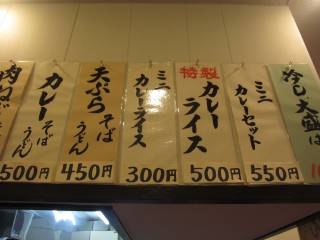 肉
うどん
500円
カレー
そば
うどん
500円
天ぷら
そば
うどん
450円
ミニ
カレーライス
300円
特製
カレー
ライス
500円
ミニ
カレーセット
550円
冷し大盛は